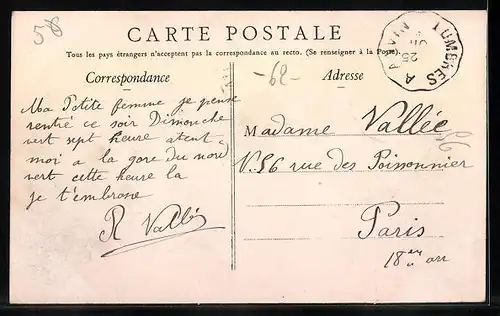 58
CARTE POSTALE
Tous les pays étrangers n'acceptent pas la correspondance au recto. (Se renseigner à la Poste).
LUMBRES A ANVIN
25
Correspondance
-62-
Adresse
Ma Petite femme je pense
rentré ce soir Dimanche
vert sept heure atent
moi a la gare du nord
vert cette heure la
je t'embrasse
R Vallée
Madame Vallée
N. 56 rue des Poissonnier
Paris
18em arr